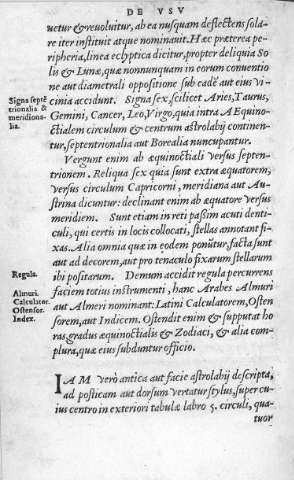 DE VSV
uetur & reuoluitur, ab ea nusquam deflectens sola-
re iter instituit atque nominauit. Hæc præterea pe-
ripheria, linea ecliptica dicitur, propter deliquia So-
lis & Lunæ, quæ nonnunquam in eorum conuentio
ne aut diametrali oppositione sub eadē aut eius vi-
Signa septē
trionalia &
meridiona-
lia.
cinia accidunt. Signa sex, scilicet Aries, Taurus,
Gemini, Cancer, Leo, Virgo, quia intra AEquino-
ctialem circulum & centrum astrolabij continen-
tur, septentrionalia aut Borealia nuncupantur.
Vergunt enim ab æquinoctiali versus septen-
trionem. Reliqua sex quia sunt extra æquatorem,
versus circulum Capricorni, meridiana aut Au-
strina dicuntur: declinant enim ab æquatore versus
meridiem. Sunt etiam in reti passim acuti denti-
culi, qui certis in locis collocati, stellas annotant fi-
xas. Alia omnia quæ in eodem ponūtur, facta sunt
aut ad decorem, aut pro tenaculo fixarum stellarum
Regula.
ibi positarum. Demum accidit regula percurrens
faciem totius instrumenti, hanc Arabes Almuri
Almuri.
Calculator.
Ostensor.
Index.
aut Almeri nominant: Latini Calculatorem, Osten
sorem, aut Indicem. Ostendit enim & supputat ho
ras, gradus æquinoctialis & Zodiaci, & alia com-
plura, quæ eius subduntur officio.
IAM verò antica aut facie astrolabij descripta,
ad posticam aut dorsum vertatur stylus, super cu-
ius centro in exteriori tabulæ labro 5. circuli, qua-
tuor